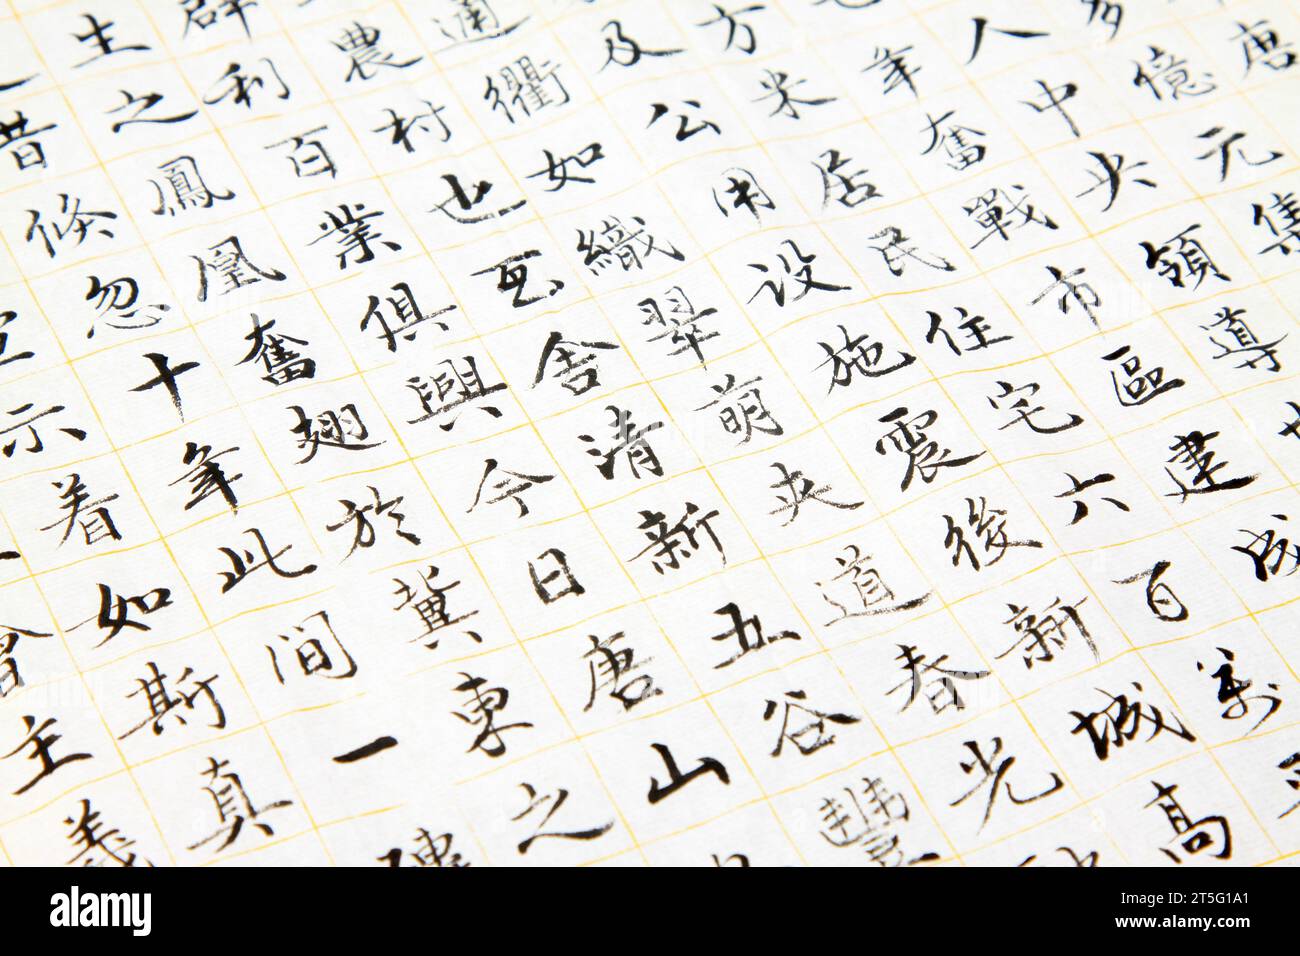 唐
多億元集
人中央領導
年奮戰市區建成
方米居民住宅六百萬平
及公用設施震後新城高
通衢如織翠萌夾道春光
農村也瓦舍清新五谷豐
利百業俱興今日唐山
生之鳳凰奮翅於冀東之
昔倏忽十年此間一
示着如斯真
主義
alamy
Image ID: 2T5G1A1
www.alamy.com